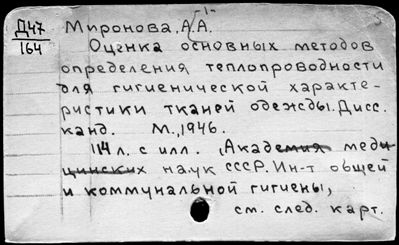 -1-
Д47
164
Миронова, А.А.
Оценка основных методов
определения теплопроводности
для гигиенической характе-
ристики тканей одежды. Дисс.
канд. М., 1946.
114 л. с илл. (Академия меди
цинских наук СССР. Ин-т общей
и коммунальной гигиены,
см. след. карт.